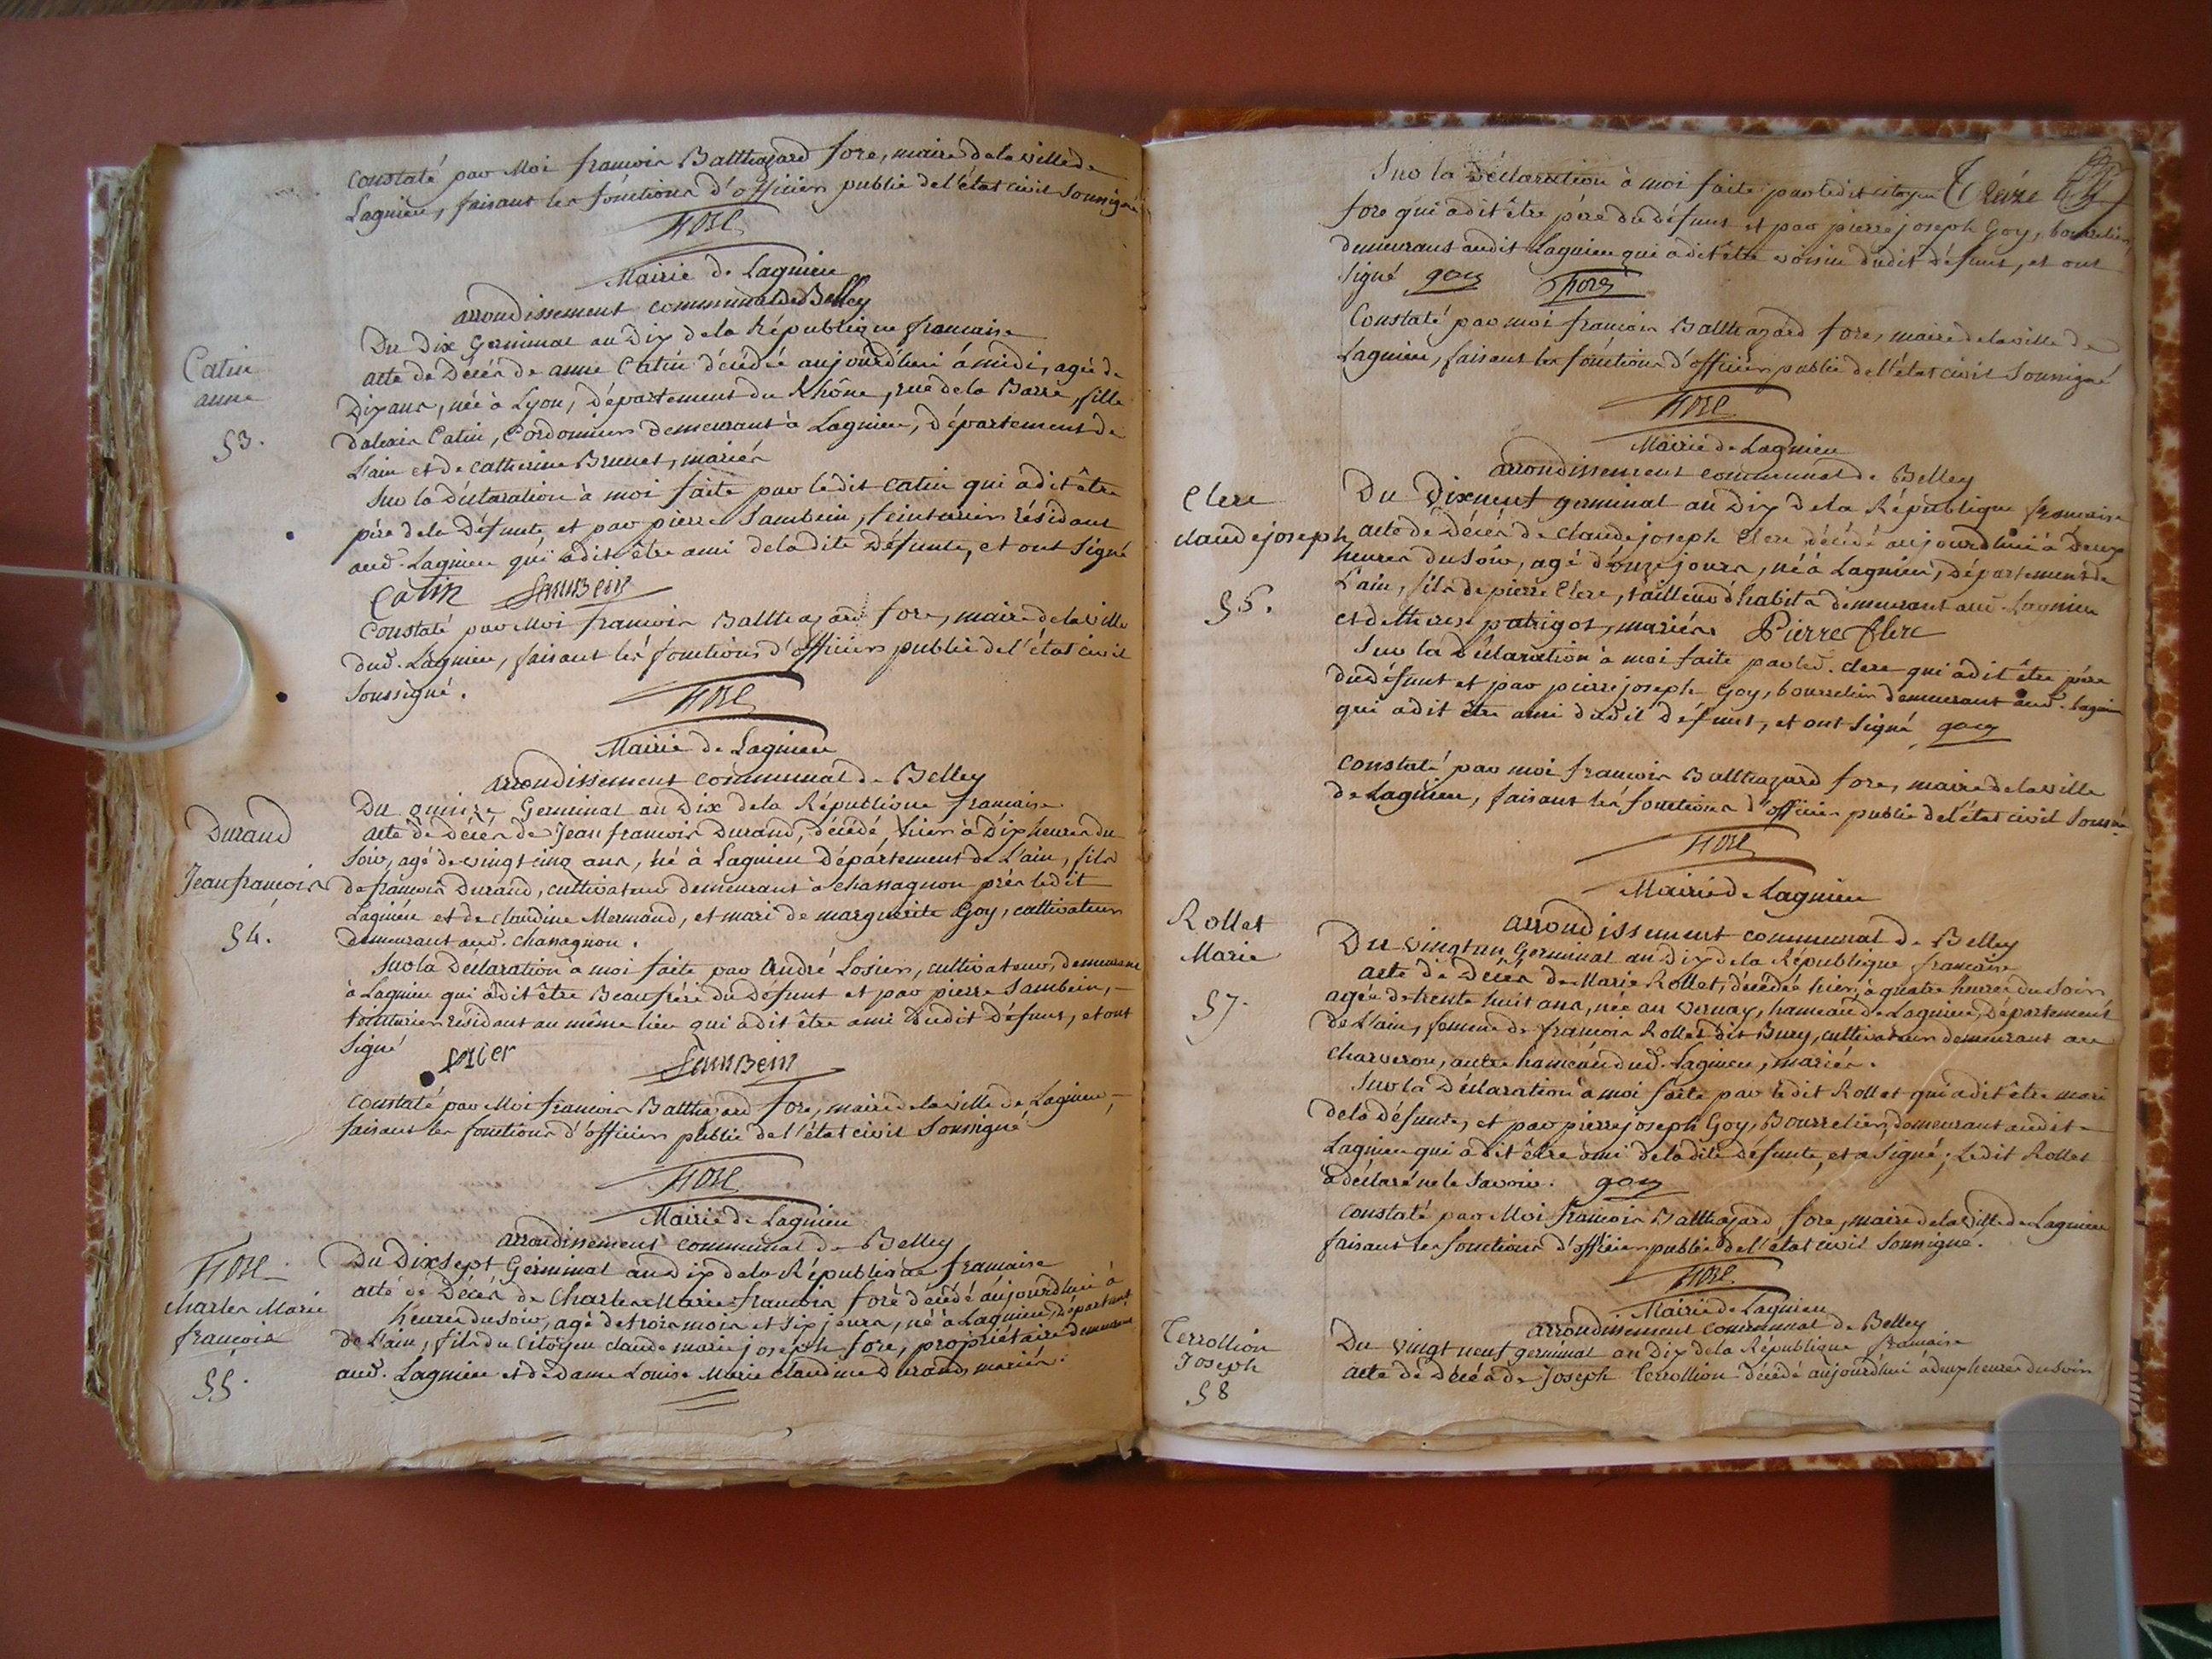 Constaté par Moi francois Balthazard fore, maire dela ville de
Lagnieu, faisant les fonctions d'officier public del'état civil soussigné
fore
Mairie de Lagnieu
arrondissement communal de Belley
Du Dix Germinal an Dix dela République francaise
Catin
anne
53.
acte de Décès de anne Catin décédée aujourd'hui à midi, agée de
Dix ans, née à Lyon, département du Rhône, rue dela Barre, fille
d'alexis Catin, Cordonnier demeurant à Lagnieu, département de
L'ain et de catherine Brunet, mariés
Sur la déclaration à moi faite par ledit catin qui a dit être
père dela Défunte, et par pierre Sambein, teinturier résidant
aud. Lagnieu qui a dit être ami deladite Défunte, et ont Signé
Catin SamBein
Constaté par Moi francois Balthazard fore, maire dela ville
dud. Lagnieu, faisant les fonctions d'officier public del'état civil
soussigné.
fore
Mairie de Lagnieu
arrondissement communal de Belley
Du quinze Germinal an Dix dela République francaise
Durand
Jean francois
54.
acte de décès de Jean francois Durand, décédé, hier à Dix heures du
Soir, agé de vingt cinq ans, né à Lagnieu département de L'ain, fils
de francois Durand, cultivateur demeurant à chassagnon près ledit
Lagnieu et de claudine Mermand, et mari de marguerite Goy, cultivateur
demeurant aud. chassagnon.
Sur la Déclaration à moi faite par andré Losier, cultivateur, demeurant
à Lagnieu qui a dit être Beaufrère du Défunt et par pierre Sambein,
teinturier résidant au même lieu qui a dit être ami dudit défunt, et ont
Signé
SamBein
Constaté par Moi francois Balthazard fore, maire dela ville de Lagnieu,
faisant les fonctions d'officier public de l'état civil Soussigné
fore
Mairie de Lagnieu
arrondissement communal de Belley
Du Dix sept Germinal an Dix dela République francaise
fore
charles Marie
francois
55.
acte de Décès de Charles Marie francois foré décédé aujourd'hui à
heures du Soir, agé de trois mois et six jours, né à Lagnieu, Départemt
de L'ain, fils du Citoyen claude marie joseph fore, propriétaire demeurant
aud. Lagnieu et de dame Louise Marie claudine Durand, mariés.
Treize
Sur la Déclaration à moi faite par ledit citoyen
fore qui a dit être père du défunt et par pierre joseph Goy, bourrelier,
demeurans audit Lagnieu qui a dit être voisin dudit défunt, et ont
Signé goy fore
Constaté par moi francois Balthazard fore, maire dela ville de
Lagnieu, faisant les fonctions d'officier public de l'état civil Soussigné
fore
Mairie de Lagnieu
arrondissement communal de Belley
Du Dixneuf germinal an Dix dela République francaise
Clerc
claude joseph
56.
acte de Décès de claude joseph Clerc décédé aujourdhui à Deux
heures du Soir, agé d'onze jours, né à Lagnieu, département de
L'ain, fils de pierre Clerc, tailleur d'habits demeurant aud. Lagnieu
et de therese patrigot, mariés. Pierre Clerc
Sur la Déclaration à moi faite par led. clerc qui a dit être père
du défunt et par pierre joseph Goy, bourrelier demeurant aud. Lagnieu
qui a dit être ami dudit défunt, et ont Signé goy
Constaté par moi francois Balthazard fore, maire dela ville
de Lagnieu, faisant les fonctions d'officier public del'état civil Soussigné
fore
Mairie de Lagnieu
arrondissement communal de Belley
Du vingt un Germinal an Dix dela République francaise
Rollet
Marie
57.
acte de Décès de Marie Rollet, décédée hier, à quatre heures du Soir
agée de trente huit ans, née au vernay, hameau de Lagnieu, Département
de L'ain, femme de francois Rollet dit Bury, cultivateur demeurant au
charveron, autre hameau dud. Lagnieu, mariés.
Sur la Déclaration à moi faite par ledit Rollet qui a dit être mari
dela défunte, et par pierre joseph Goy, Bourrelier, demeurant audit
Lagnieu qui a dit être ami deladite défunte, et a Signé; Ledit Rollet
a déclaré ne le Savoir. goy
Constaté par Moi francois Balthazard fore, maire dela ville de Lagnieu
faisant les fonctions d'officier public de l'état civil Soussigné.
fore
Mairie de Lagnieu
arrondissement communal de Belley
Du vingt neuf germinal an Dix dela République francaise
Terrollion
Joseph
58
acte de Décès de Joseph Terrollion décédé aujourd'hui à deux heures du Soir